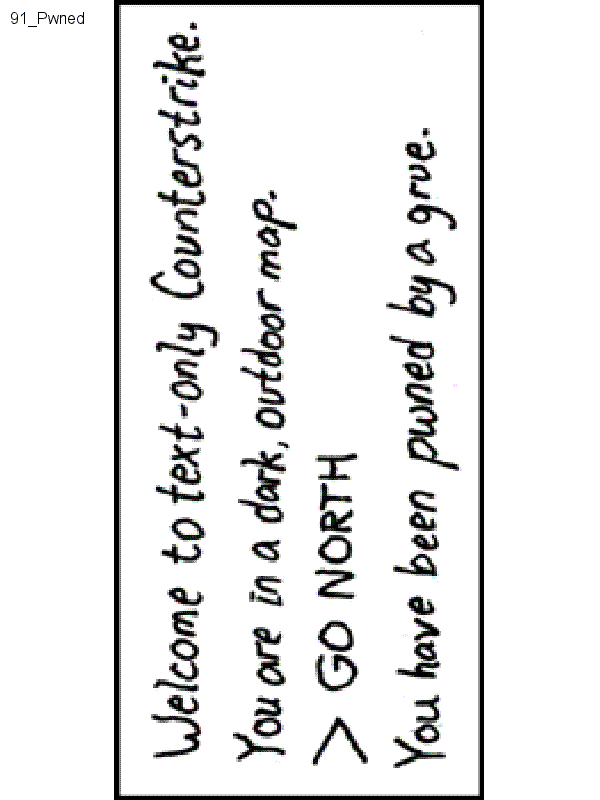 91_Pwned
Welcome to text-only Counterstrike.
You are in a dark, outdoor map.
> GO NORTH
You have been pwned by a grue.